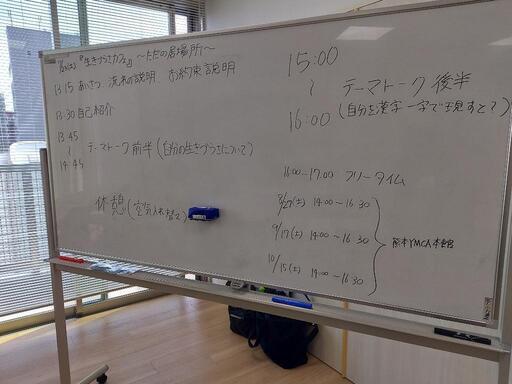 (土)『生きづらさカフェ』 ~ただの居場所~
13:15 あいさつ 流れの説明 お約束説明
13:30 自己紹介
13:45
~ テーマトーク前半(自分の生きづらさについて)
14:45
休憩(空気入れ替え)
15:00
~ テーマトーク後半
16:00 (自分を漢字一字で表すと?)
16:00~17:00 フリータイム
8/27(土) 14:00~16:30
9/17(土) 14:00~16:30
10/15(土) 14:00~16:30
熊本YMCA本館